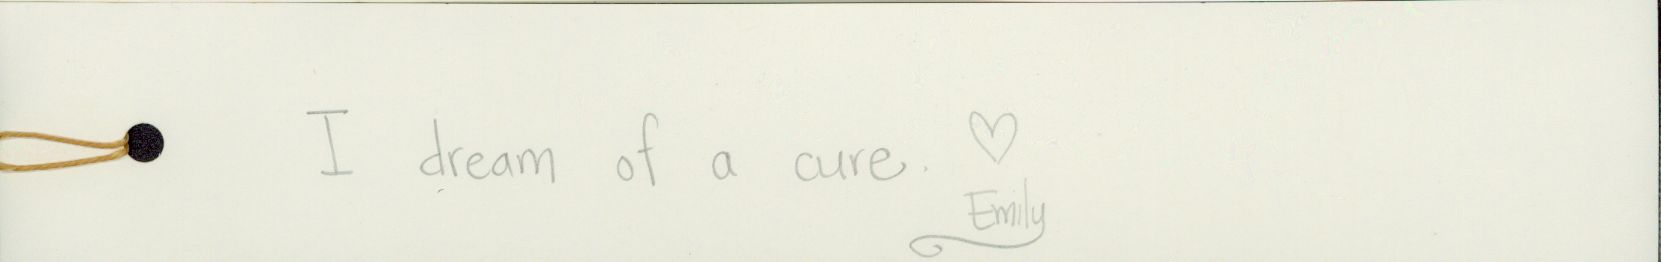 I dream of a cure. ♡
Emily